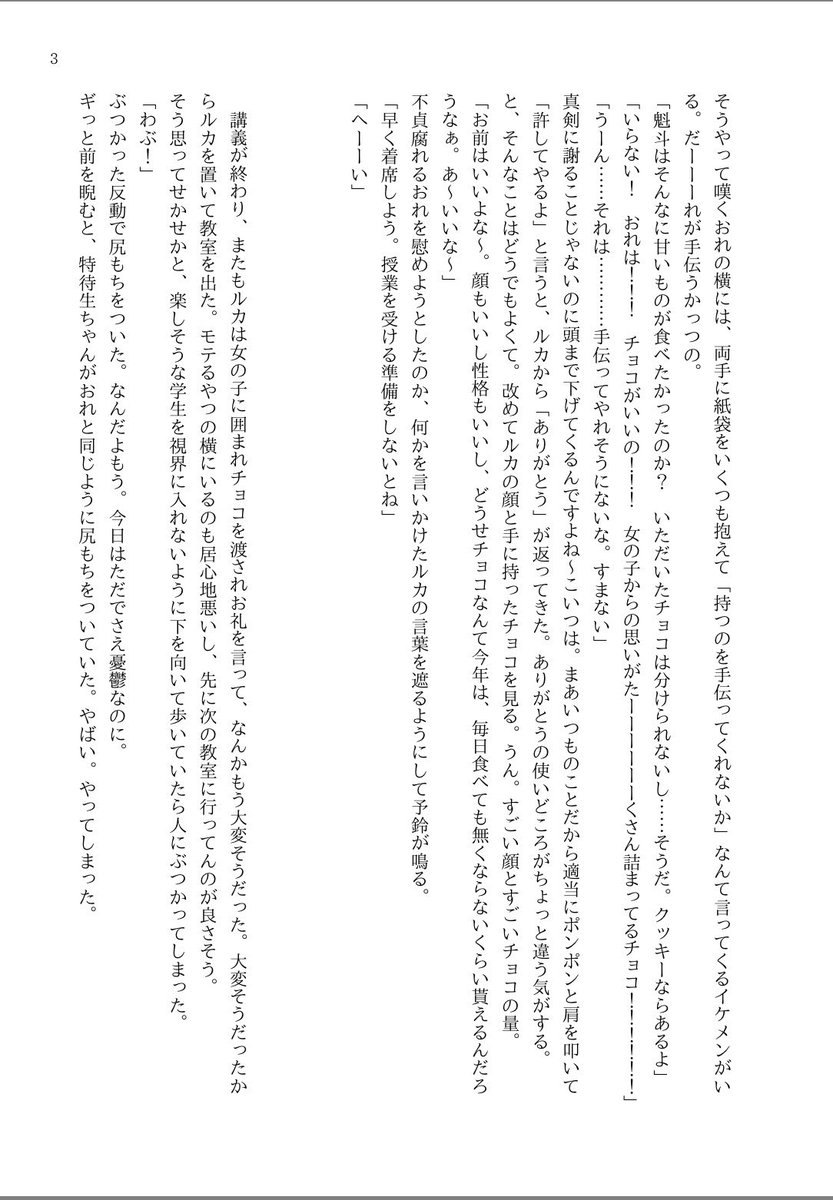 3
そうやって嘆くおれの横には、両手に紙袋をいくつも抱えて「持つのを手伝ってくれないか」なんて言ってくるイケメンがい
る。だーーーれが手伝うかっつの。
「魁斗はそんなに甘いものが食べたかったのか？　いただいたチョコは分けられないし……そうだ。クッキーならあるよ」
「いらない！　おれは！！！　チョコがいいの！！！　女の子からの思いがたーーーーーーくさん詰まってるチョコ！！！！！！」
「うーん……それは…………手伝ってやれそうにないな。すまない」
真剣に謝ることじゃないのに頭まで下げてくるんですよね～こいつは。まあいつものことだから適当にポンポンと肩を叩いて
「許してやるよ」と言うと、ルカから「ありがとう」が返ってきた。ありがとうの使いどころがちょっと違う気がする。
と、そんなことはどうでもよくて。改めてルカの顔と手に持ったチョコを見る。うん。すごい顔とすごいチョコの量。
「お前はいいよな～。顔もいいし性格もいいし、どうせチョコなんて今年は、毎日食べても無くならないくらい貰えるんだろ
うなぁ。あ～いいな～」
不貞腐れるおれを慰めようとしたのか、何かを言いかけたルカの言葉を遮るようにして予鈴が鳴る。
「早く着席しよう。授業を受ける準備をしないとね」
「へーーい」
講義が終わり、またもルカは女の子に囲まれチョコを渡されお礼を言って、なんかもう大変そうだった。大変そうだったか
らルカを置いて教室を出た。モテるやつの横にいるのも居心地悪いし、先に次の教室に行ってんのが良さそう。
そう思ってせかせかと、楽しそうな学生を視界に入れないように下を向いて歩いていたら人にぶつかってしまった。
「わぶ！」
ぶつかった反動で尻もちをついた。なんだよもう。今日はただでさえ憂鬱なのに。
ギっと前を睨むと、特待生ちゃんがおれと同じように尻もちをついていた。やばい。やってしまった。